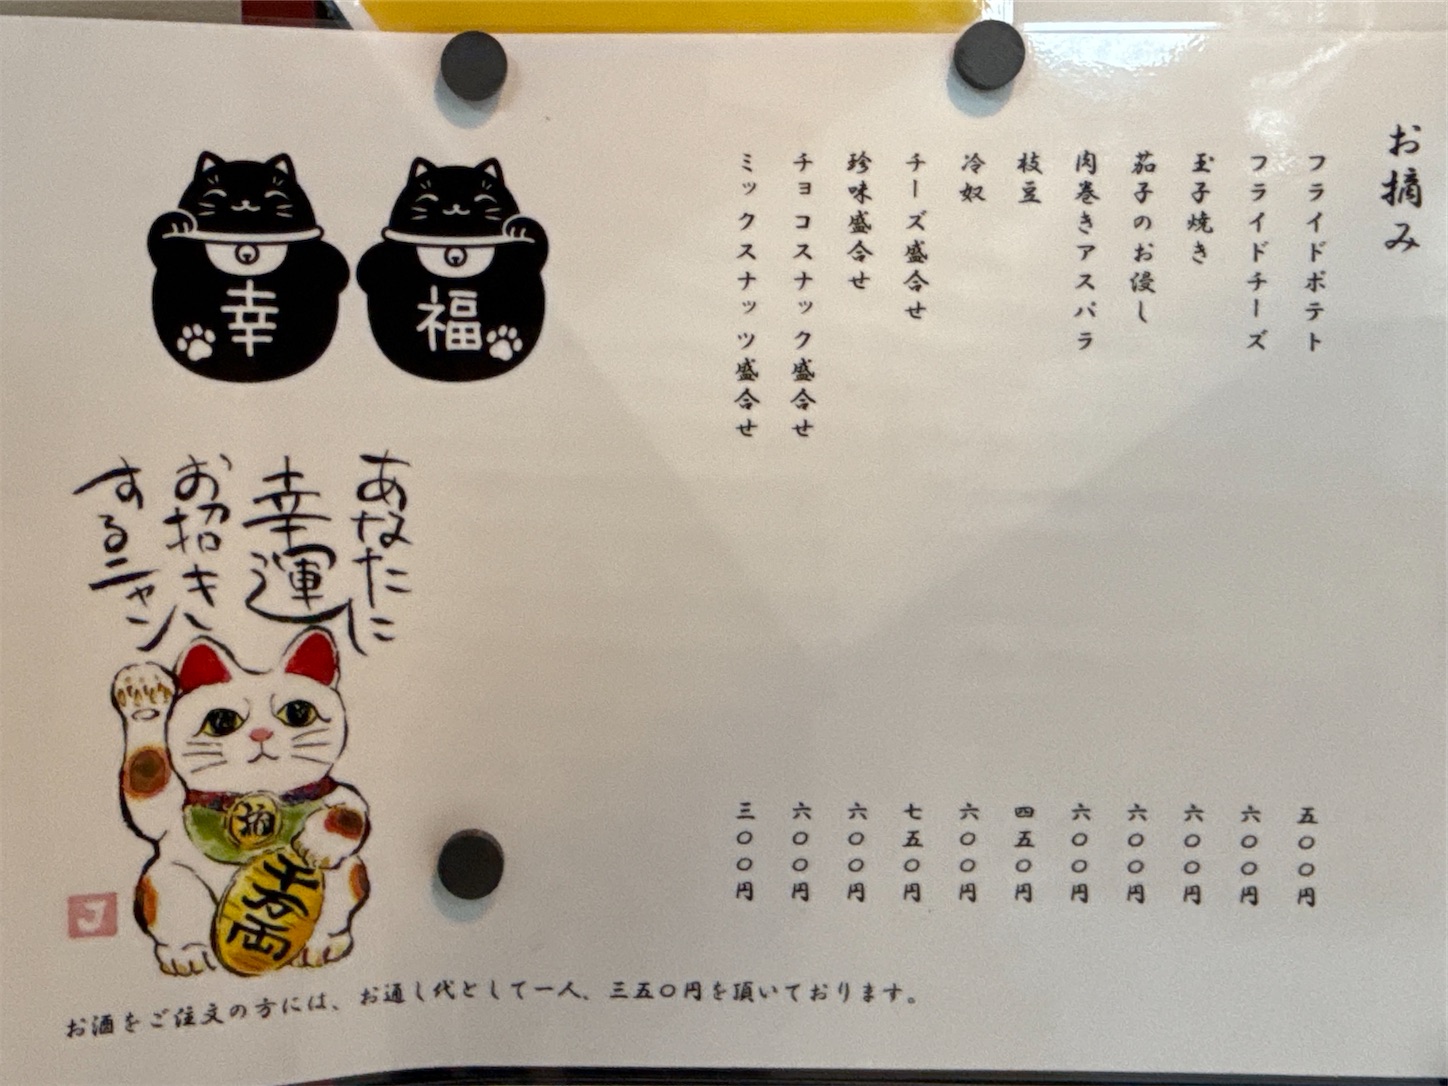 お摘み
フライドポテト 五〇〇円
フライドチーズ 六〇〇円
玉子焼き 六〇〇円
茄子のお浸し 六〇〇円
肉巻きアスパラ 六〇〇円
枝豆 四五〇円
冷奴 六〇〇円
チーズ盛合せ 七五〇円
珍味盛合せ 六〇〇円
チョコスナック盛合せ 六〇〇円
ミックスナッツ盛合せ 三〇〇円
福
幸
あなたに
幸運
お招き
するニャン
招
千万両
J
お酒をご注文の方には、お通し代として一人、三五〇円を頂いております。